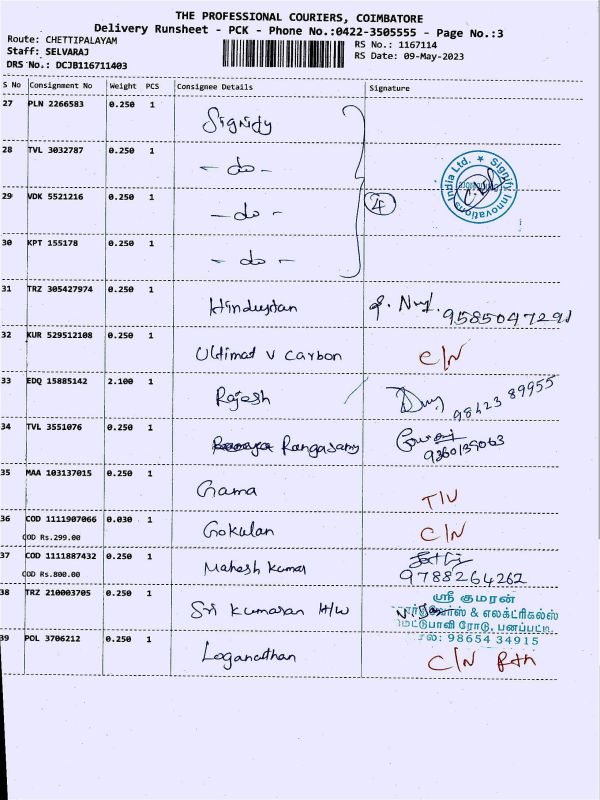 THE PROFESSIONAL COURIERS, COIMBATORE
Delivery Runsheet - PCK - Phone No.:0422-3505555 - Page No.:3
Route: CHETTIPALAYAM
Staff: SELVARAJ
DRS No.: DCJB116711403
RS No.: 1167114
RS Date: 09-May-2023
S No Consignment No Weight PCS Consignee Details Signature
27 PLN 2266583 0.250 1 Signidy
28 TVL 3032787 0.250 1 - do -
29 VDK 5521216 0.250 1 - do - 4
Signify Innovations India Ltd.
30 KPT 155178 0.250 1 - do -
31 TRZ 305427974 0.250 1 Hindustan 9585047291
32 KUR 529512108 0.250 1 Ultimat V Carbon C/N
33 EDQ 15885142 2.100 1 Rajesh 98423 89955
34 TVL 3551076 0.250 1 Rangasamy 9360139063
35 MAA 103137015 0.250 1 Gama T/U
36 COD 1111907066 0.030 1 Gokulan C/N
COD Rs.299.00
37 COD 1111887432 0.250 1 Mahesh Kumar 9788264262
COD Rs.800.00
38 TRZ 210003705 0.250 1 Sri Kumaran H/W
ஸ்ரீ குமரன்
& எலக்ட்ரிகல்ஸ்
ரோடு, பனப்பட்டி
செல்: 98654 34915
39 POL 3706212 0.250 1 Loganathan C/N